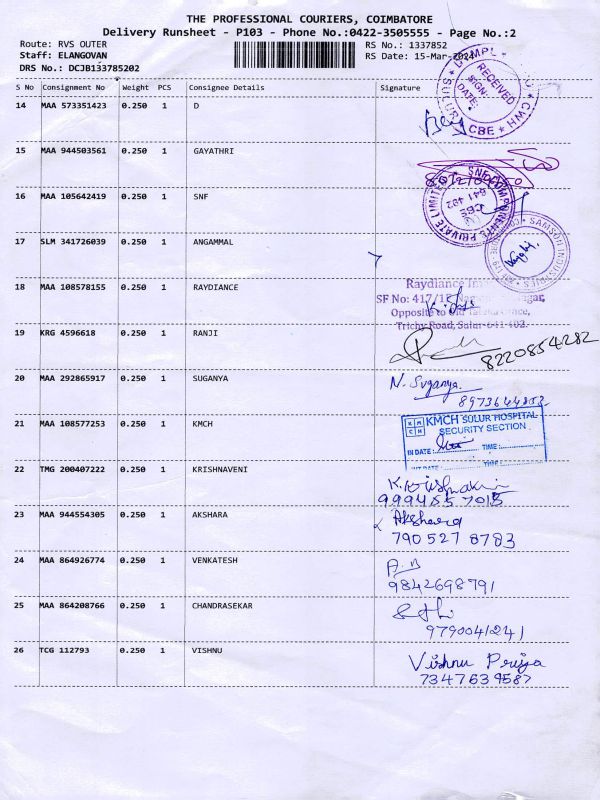 THE PROFESSIONAL COURIERS, COIMBATORE
Delivery Runsheet - P103 - Phone No.:0422-3505555 - Page No.:2
Route: RVS OUTER
RS No.: 1337852
Staff: ELANGOVAN
RS Date: 15-Mar-2024
DRS No.: DCJB133785202
S No Consignment No Weight PCS Consignee Details Signature
14 MAA 573351423 0.250 1 D
RECEIVED
SIGN:
DATE:
SULUR CBE
15 MAA 944503561 0.250 1 GAYATHRI
16 MAA 105642419 0.250 1 SNF
SNF COMPONENTS PRIVATE LIMITED
641 402
17 SLM 341726039 0.250 1 ANGAMMAL
SAMSON INDUSTRIES
18 MAA 108578155 0.250 1 RAYDIANCE
Raydiance
SF No: 417/1
Opposite to Old
Trichy Road, Sulur-641 402.
19 KRG 4596618 0.250 1 RANJI
8220854282
20 MAA 292865917 0.250 1 SUGANYA
N. Suganya
21 MAA 108577253 0.250 1 KMCH
KMCH SULUR HOSPITAL
SECURITY SECTION
IN DATE: TIME:
OUT DATE: TIME:
22 TMG 200407222 0.250 1 KRISHNAVENI
9994857015
23 MAA 944554305 0.250 1 AKSHARA
Akshara
790 527 8783
24 MAA 864926774 0.250 1 VENKATESH
A.B
9842698791
25 MAA 864208766 0.250 1 CHANDRASEKAR
9790041241
26 TCG 112793 0.250 1 VISHNU
Vishnu Priya
7347639587